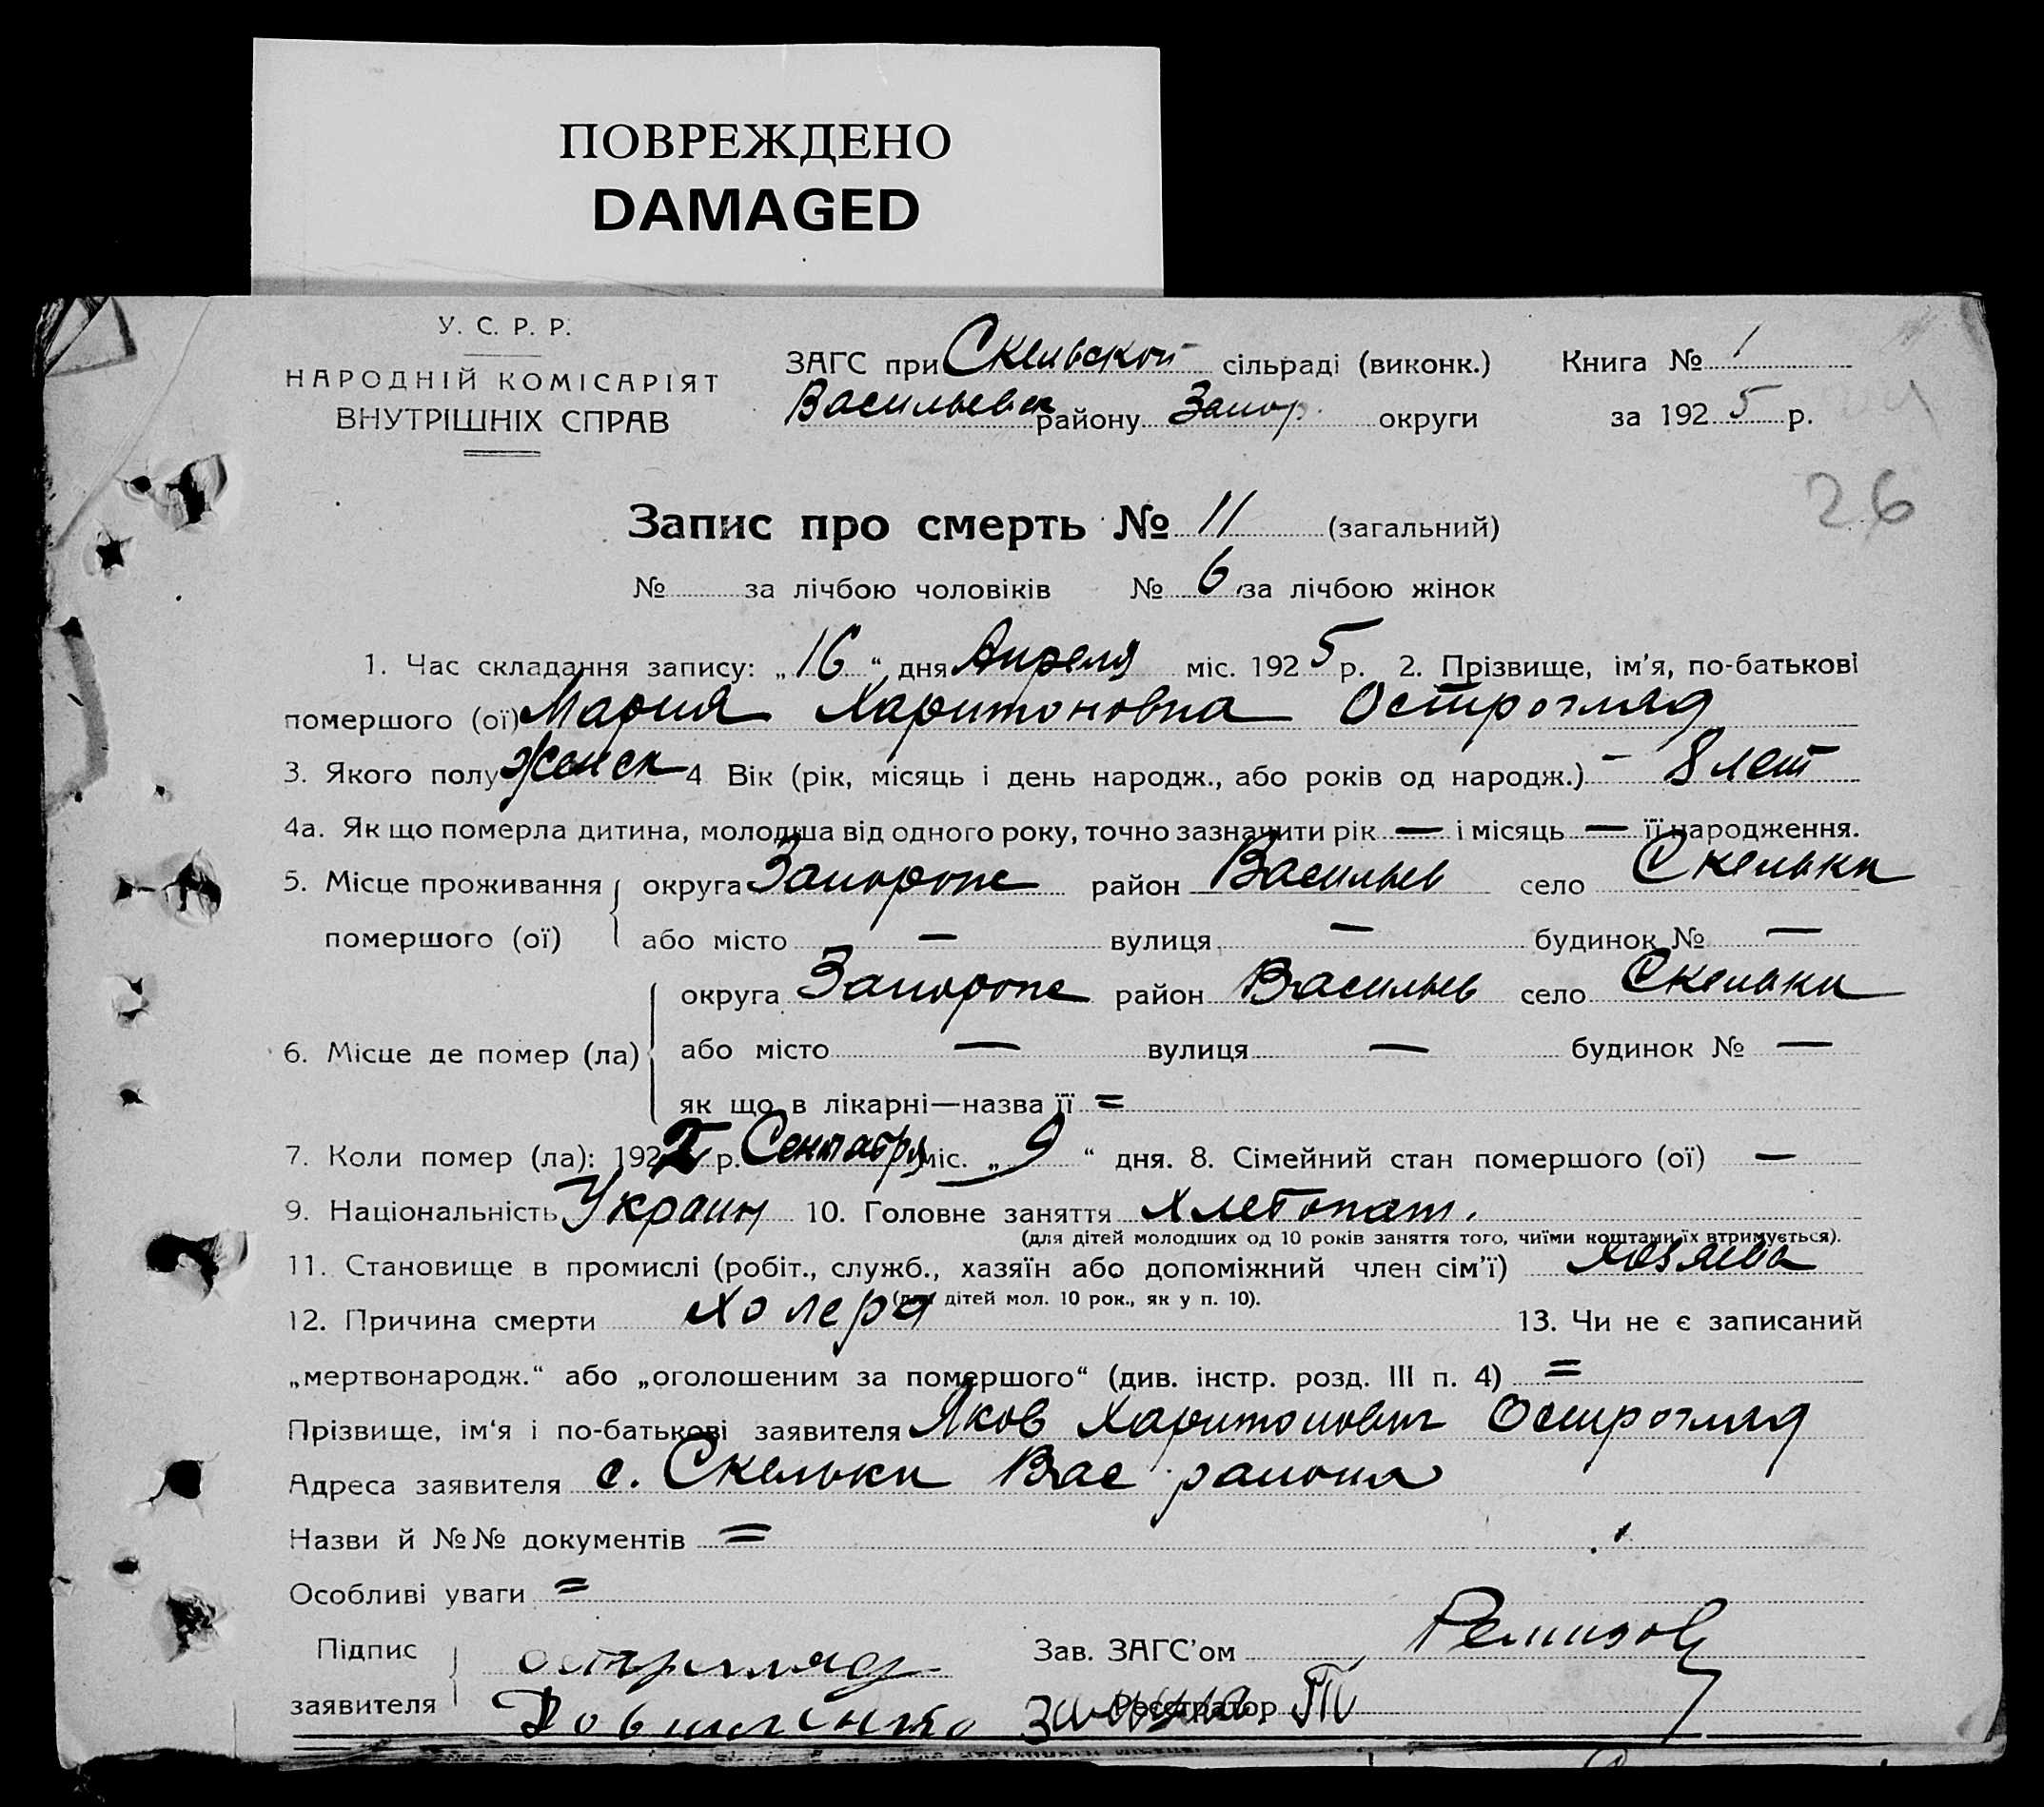 ПОВРЕЖДЕНО
DAMAGED
У. С. Р. Р.
НАРОДНІЙ КОМІСАРІЯТ
ВНУТРІШНІХ СПРАВ
ЗАГС при Скельской сільраді (виконк.) Книга № 1
Васильевск району Запор. округи за 1925 р.
26
Запис про смерть № 11 (загальний)
№ за лічбою чоловіків № 6 за лічбою жінок
1. Час складання запису: „16“ дня Апреля міс. 1925 р. 2. Прізвище, ім’я, по-батькові
помершого (ої) Мария Харитоновна Острогляд
3. Якого полу Женск 4 Вік (рік, місяць і день народж., або років од народж.) – 8 лет
4а. Як що померла дитина, молодша від одного року, точно зазначити рік — і місяць — її народження.
5. Місце проживання округа Запорож район Васильев село Скельки
помершого (ої) або місто — вулиця — будинок № —
округа Запорож район Васильев село Скельки
6. Місце де помер (ла) або місто — вулиця — будинок № —
як що в лікарні—назва її =
7. Коли помер (ла): 192 р. Сентября міс. „9“ дня. 8. Сімейний стан помершого (ої) —
9. Національність Украин 10. Головне заняття Хлебопаш.
(для дітей молодших од 10 років заняття того, чиїми коштами їх втримується).
11. Становище в промислі (робіт., служб., хазяїн або допоміжний член сім’ї) хозяева
(для дітей мол. 10 рок., як у п. 10).
12. Причина смерти холера 13. Чи не є записаний
„мертвонародж.“ або „оголошеним за помершого“ (див. інстр. розд. III п. 4) =
Прізвище, ім‘я і по-батькові заявителя Яков Харитонович Острогляд
Адреса заявителя с. Скельки Вас района
Назви й №№ документів =
Особливі уваги =
Підпис Остргляд Зав. ЗАГС’ом Ремизов
заявителя Реєстратор